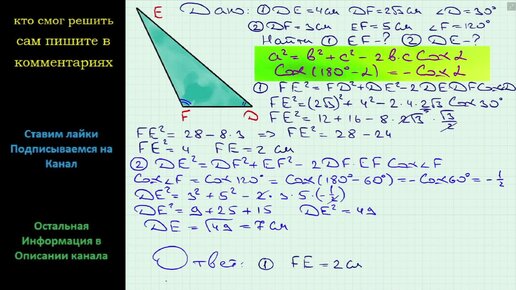 кто смог решить
сам пишите в
комментариях
Ставим лайки
Подписываемся на
Канал
Остальная
Информация в
Описании канала
E
F
D
Дано: ① DE = 4см DF = 2√3 см ∠D = 30°
② DF = 3см EF = 5см ∠F = 120°
Найти ① EF - ? ② DE - ?
a² = b² + c² - 2bc Cos α
Cos (180° - α) = - Cos α
① FE² = FD² + DE² - 2·DE·DF Cos D
FE² = (2√3)² + 4² - 2·4·2√3 Cos 30°
FE² = 12 + 16 - 8·2√3·√3/2
FE² = 28 - 8·3 => FE² = 28 - 24
FE² = 4 FE = 2 см
② DE² = DF² + EF² - 2DF·EF Cos∠F
Cos∠F = Cos 120° = Cos (180° - 60°) = - Cos 60° = - 1/2
DE² = 3² + 5² - 2·3·5·(-1/2)
DE² = 9 + 25 + 15 DE² = 49
DE = √49 = 7 см
Ответ: ① FE = 2см